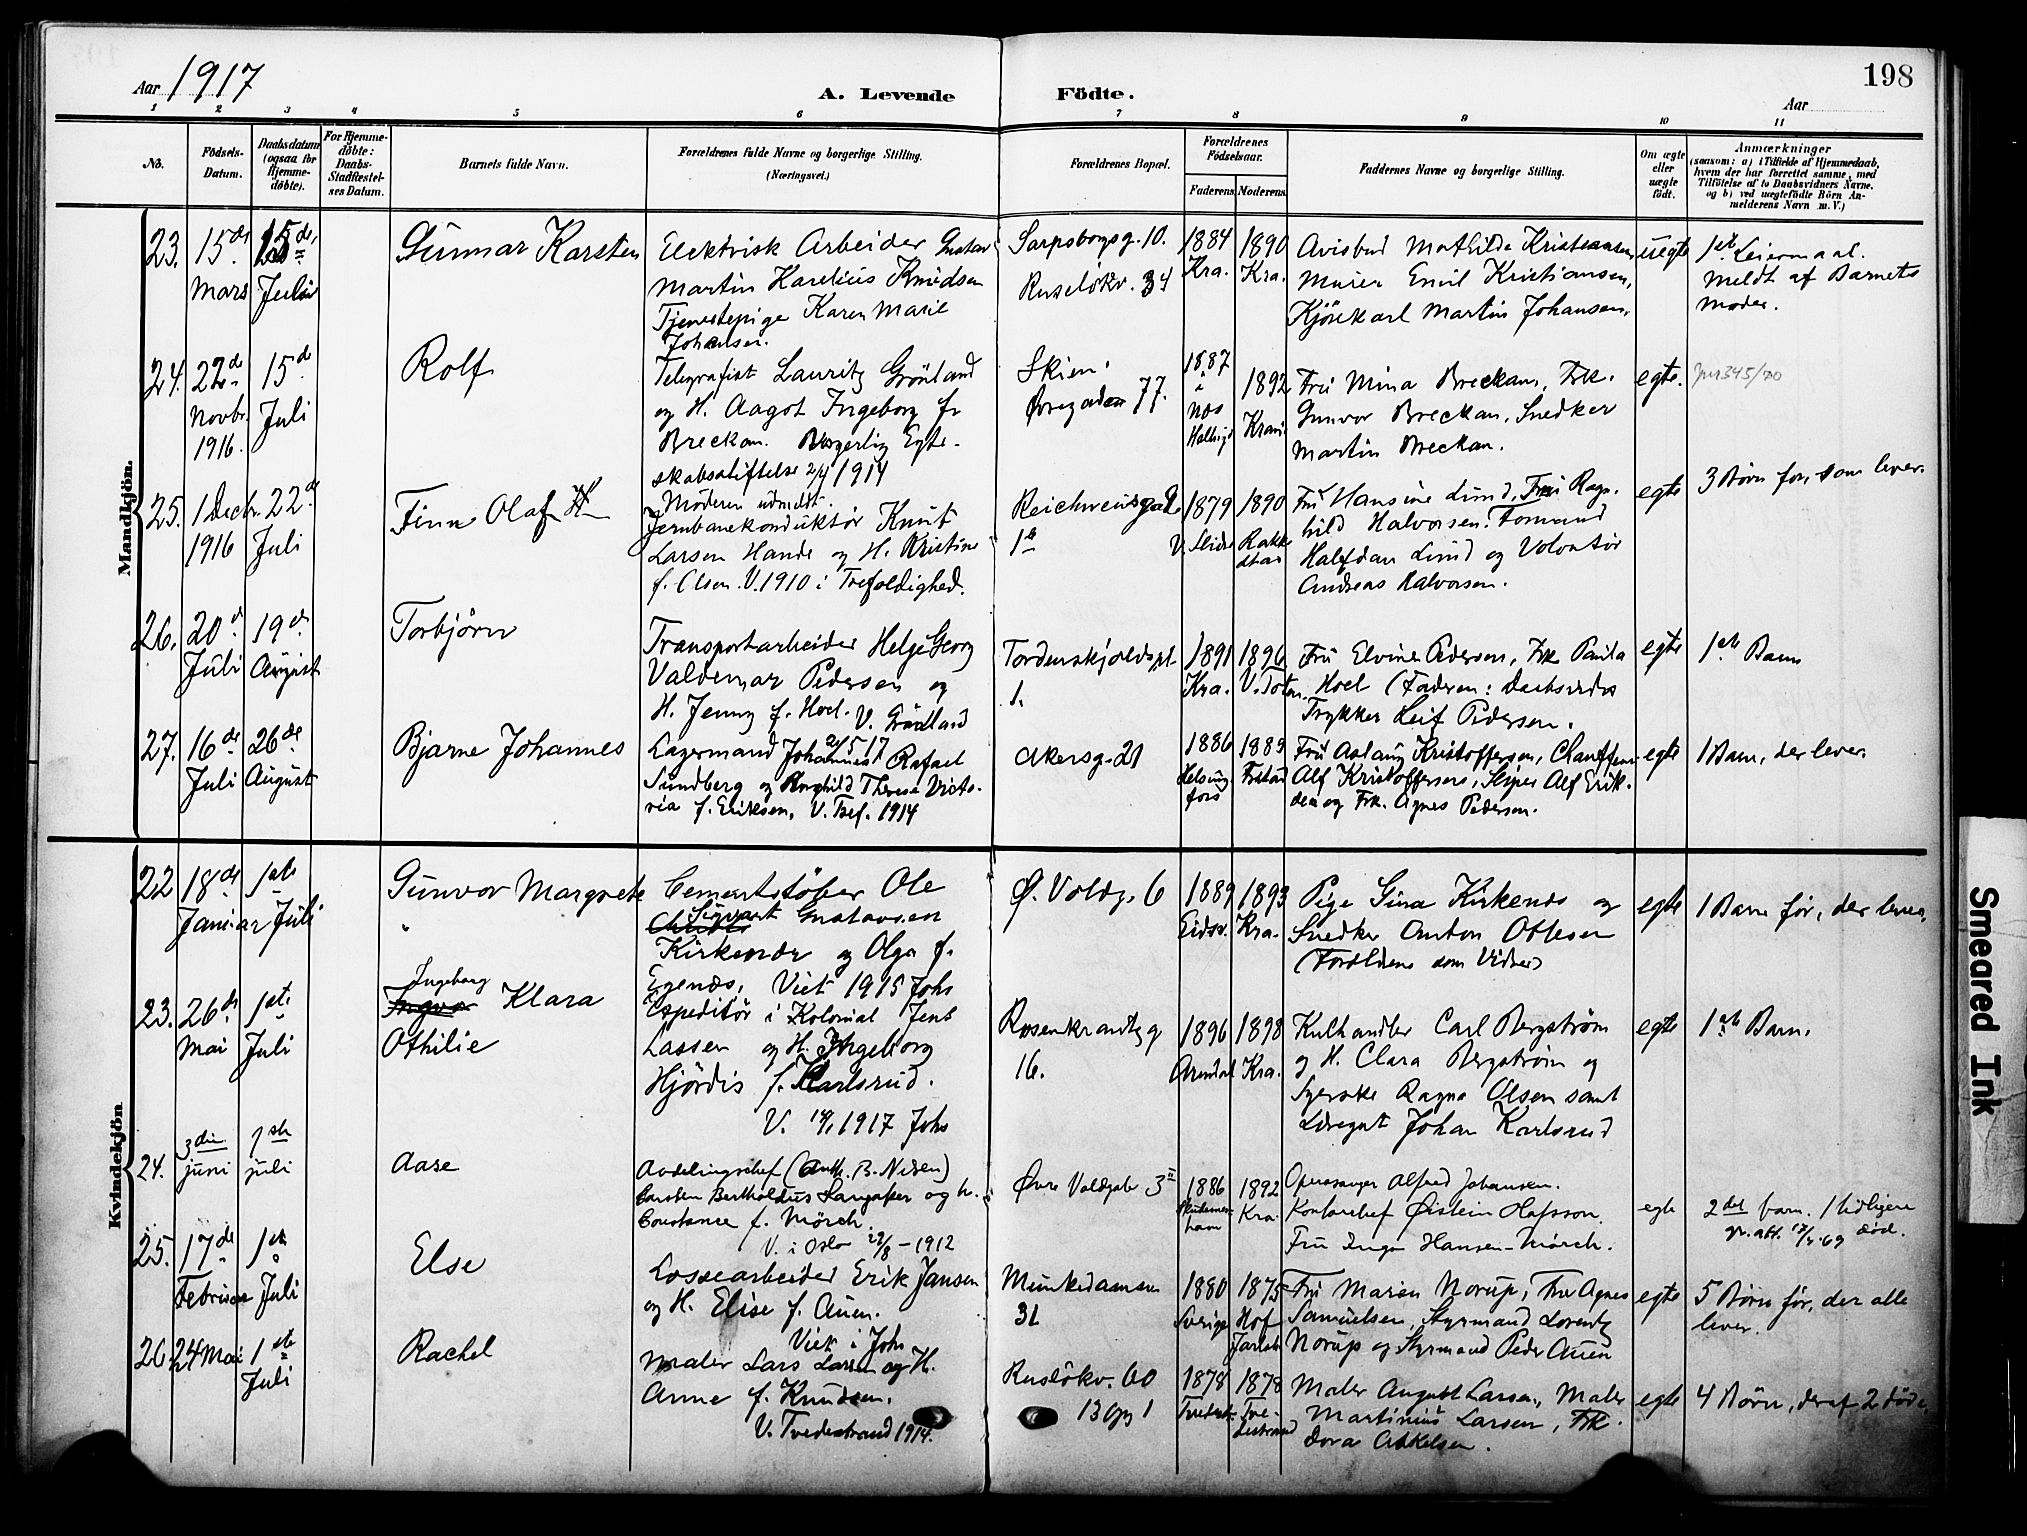 Aar 1917
A. Levende Födte.
198
Aar
1 2 3 4 5 6 7 8 9 10 11
No.
Födsels-Datum.
Daabsdatum (ogsaa for Hjemme-döbte).
For Hjemme-döbte: Daabs-Stadfæstelses Datum.
Barnets fulde Navn.
Forældrenes fulde Navne og borgerlige Stilling.
(Næringsvei.)
Forældrenes Bopæl.
Forældrenes Födselsaar.
Faderens Moderens
Faddernes Navne og borgerlige Stilling.
Om ægte eller uægte födt.
Anmærkninger
(saasom: a) i Tilfælde af Hjemmedaab, hvem der har forrettet samme, med Tilföielse af to Daabsvidners Navne, og b) ved uægtefödte Börn Anmelderens Navn m. V.)
Mandkjön.
23. 15de Mars 15de Juli
Gunnar Karsten
Elektrisk Arbeider Gustav
Martin Karelius Knudsen
Tjenestepige Karen Marie
Johansen.
Sarpsborgsg. 10.
Ruselökv. 34
1884 Kra. 1890 Kra.
Avisbud Mathilde Kristiansen
Murer Emil Kristiansen,
Kjörekarl Martin Johansen.
uegte
1ste Leiermaal.
Meldt af Barnets
Moder.
24. 22de Novbr. 1916. 15de Juli
Rolf
Telegrafist Lauritz Grönland
og H. Aagot Ingeborg f.
Breckan. Borgerlig Egte-
skabsstiftelse 2/4 1914
Moderen udmeldt.
Skien.
Øvregaden 77.
1887 i Næs 1892
Fru Mina Breckan, Frk.
Gunvor Breckan, Snedker
Martin Breckan.
egte.
25. 1 Decbr. 1916 22de Juli
Finn Olaf
Jernbanekonduktör Knut
Larsen Hande og H. Kristine
f. Olsen. V. 1910 i Trefoldighed.
1879 V. Slidre 1890
Fru Hansine Lund, Fru Ragn-
hild Halvorsen. Formand
Halfdan Lund og Volontör
Andreas Halvorsen.
egte
3 Börn för, som lever.
26. 20de Juli 19de August
Torbjörn
Transportarbeider Helge Georg
Valdemar Pedersen og
H. Jenny f. Hoel. V. Grönland
2/5 17
Tordenskjoldspl.
1.
1891 Kra. 1896 V. Toten.
Fru Elvine Pedersen, Frk. Paula
Hoel (Faderen: Daabsvidne
Trykker Leif Pedersen.
egte
1ste Barn
27. 16de Juli 26de August
Bjarne Johannes
Lagermand Johannes Rafael
Sundberg og Ragnhild Therese Victo-
ria f. Eriksen. V. Tref. 1914
Akersg. 21
1886 Helsingfors 1889 Frstad
Fru Aslaug Kristoffersen, Chauffeur
Alf Kristoffersen, Sliper Alf Erik-
sen og Frk. Agnes Pedersen.
egte
1 Barn, der lever.
Kvindekjön
22 18de Januar 1ste Juli
Gunvor Margrete
Cementstöber Ole
Sigvart Gustavsen
Kirkenær og Olga f.
Egenæs, Viet 1915 Johs
Ø. Voldg. 6
1889 Eidsv. 1893 Kra.
Pige Gina Kirkenæs og
Snedker Anton Ottesen
(Foreldrene som Vidner)
egte
1 Barn för, der lever.
23. 26de Mai 1ste Juli
Ingeborg Klara
Othilie
Expeditör i Kolonial Jens
Lassen og H. Ingeborg
Hjördis f. Karlsrud.
V. 14/1 1917 Johs
Rosenkrantzg
16.
1896 Arendal 1898 Kra.
Kulhandler Carl Bergström
og H. Clara Bergström og
Syerske Ragna Olsen samt
Læregut Johan Karlsrud
egte
1ste Barn.
24. 3die juni 1ste juli
Aase
Avdelingschef (Anth. B. Nilsen)
Carsten Bertholdus Langaker og h.
Constance f. Mörch.
V. i Oslo 29/8 - 1912
Øvre Voldgate 3
1886 1892 Kra.
Operasanger Alfred Johansen.
Kontorchef Øistein Hafsson.
Fru Inga Hansen-Mörch.
egte
2det barn. 1 tidligere
död.
25. 17de Februar 1ste Juli
Else
Lossearbeider Erik Jansen
og H. Elise f. Auen.
Viet i Johs
Munkedamsv
31
1880 Sverige 1875 Hof Jarlsb.
Fru Maren Norup, Fru Agnes
Samuelsen, Styrmand Lorentz
Norup og Styrmand Peder Auen
egte
5 Börn för, der alle
lever.
26. 24 Mai 1ste Juli
Rachel
Maler Lars Larsen og H.
Anne f. Knudsen.
V. Tvedestrand 1914.
Ruselökv. 60
13 opg 1
1878 Tvedestr. 1878 Tvedestrand
Maler August Larsen, Maler
Martinius Larsen, Frk.
Dora Askelsen.
egte
4 Börn, deraf 2 döde.
Smeared Ink